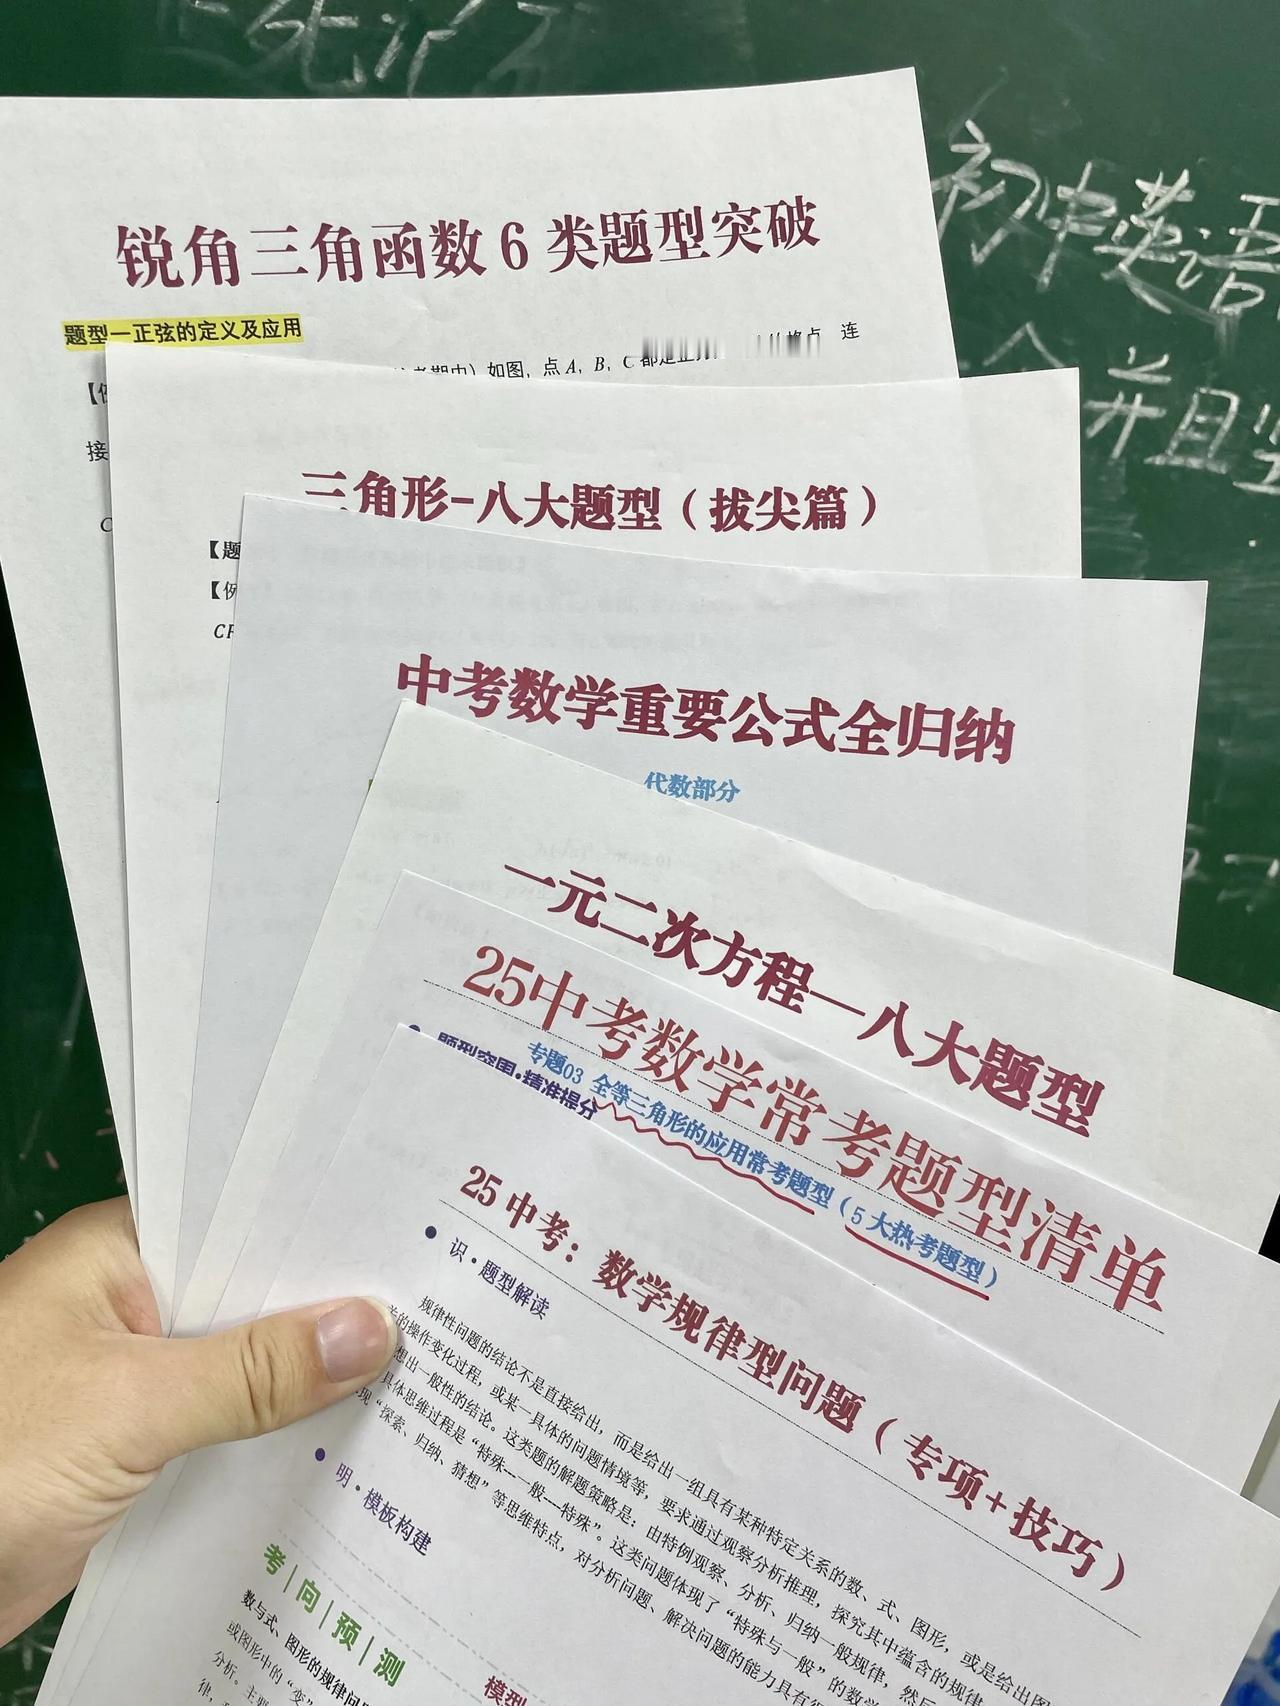 初中英语
并且
锐角三角函数6类题型突破
题型一正弦的定义及应用
如图，点A，B，C都是 格点 连
接
C
三角形-八大题型（拔尖篇）
【题
【例
CF
中考数学重要公式全归纳
代数部分
一元二次方程—八大题型
25中考数学常考题型清单
专题03 全等三角形的应用常考题型（5大热考题型）
题型突围·精准提分
25中考：数学规律型问题（专项+技巧）
识·题型解读
规律性问题的结论不是直接给出，而是给出一组具有某种特定关系的数、式、图形，或是给出图
的操作变化过程，或某一具体的问题情境等，要求通过观察分析推理，探究其中蕴含的规律
想出一般性的结论。这类题的解题策略是：由特例观察、分析、归纳一般规律，然后
具体思维过程是“特殊---一般---特殊”。这类问题体现了“特殊与一般”的数学
现“探索、归纳、猜想”等思维特点，对分析问题、解决问题的能力具有很
明·模板构建
考|向|预|测
模型
数与式、图形的规律问题
或图形中的“变”
分析。主要
律，